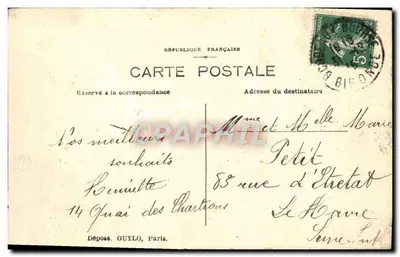 RÉPUBLIQUE FRANÇAISE
CARTE POSTALE
Réservé à la correspondance
Adresse du destinataire
Nos meilleurs
souhaits
Henriette
14 Quai des Chartrons
Mme et Melle Marie
Petit
83 rue d'Etretat
Le Havre
Seine Inf
Déposé. GUYLO, Paris.
GIRONDE
5
CPRPHIL